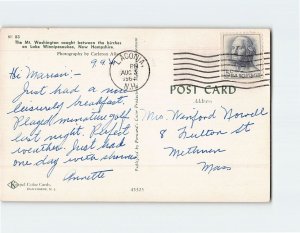 The Mt. Washington caught between the birches
on Lake Winnipesaukee, New Hampshire
Photography by Carleton
LACONIA,
PM
AUG
POST CARD
Address
Hi Marian:—
Just had a nice
leisurely breakfast.
Played miniature golf
last night. Perfect
weather. Just had
one day with
Annette
Mrs. Winford Nowell
8 Fulton St
Methuen
Mass
Color Cards,